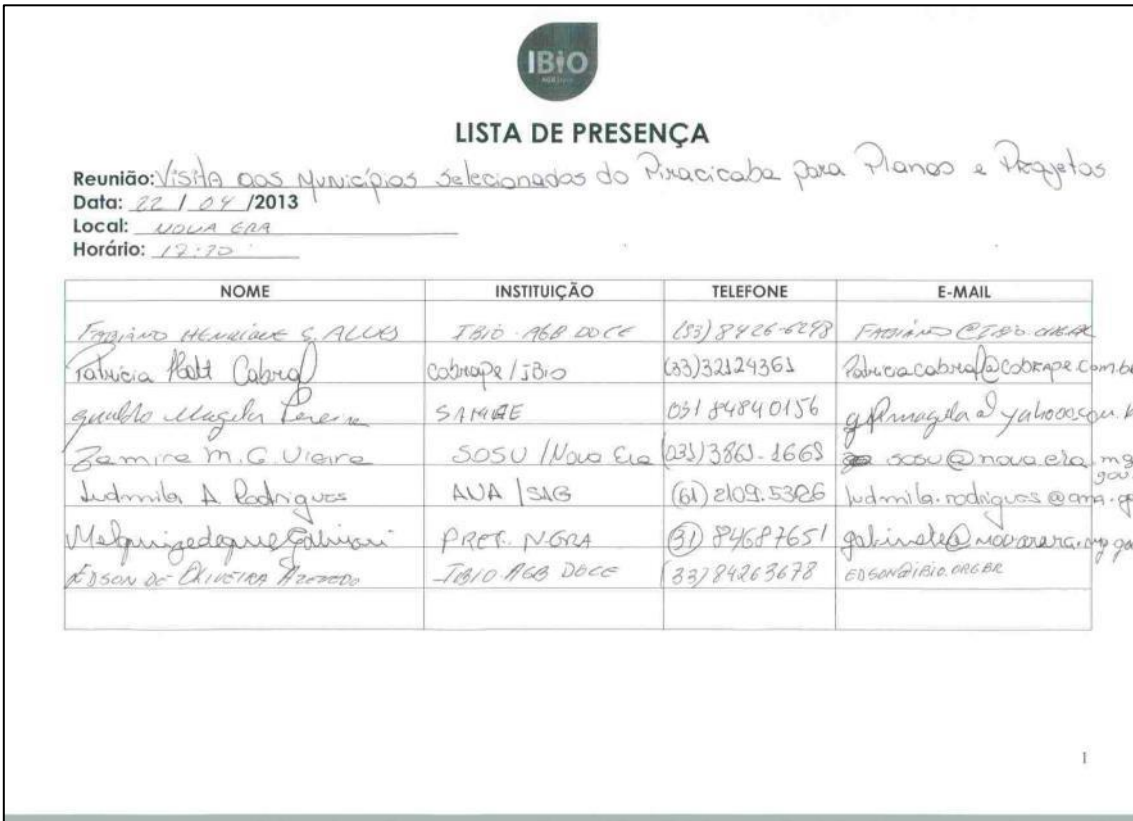 IBiO
AGB Doce
LISTA DE PRESENÇA
Reunião: Visita aos Municípios selecionados do Piracicaba para Planos e Projetos
Data: 22 / 04 /2013
Local: NOVA ERA
Horário:
NOME INSTITUIÇÃO TELEFONE E-MAIL
FABIANO HENRIQUE S. ALVES IBIO - AGB DOCE 8426-6298 FABIANO@IBIO.ORG.BR
Patricia Cabral cobrape/IBio (33)32124361 Patriciacabral@cobrape.com.b
Magela Pereira 031 84840156
Zamira M. G. Vieira SOSU/Nova Era (031)3861-1668 sosu@nova era.mg
gov.
Ludmila A Rodrigues ANA/SAG (61) 2109.5326 ludmila.rodrigues@ana.g
PREF. N.ERA (31) 84687651
EDSON DE OLIVEIRA AZEVEDO IBIO-AGB DOCE (33)84263678 EDSON@IBIO.ORG.BR
1